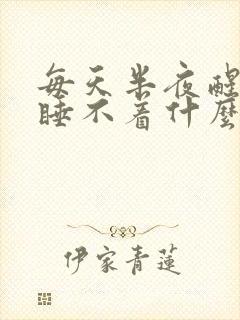 每天半夜醒
睡不着什麼
伊家青蓮